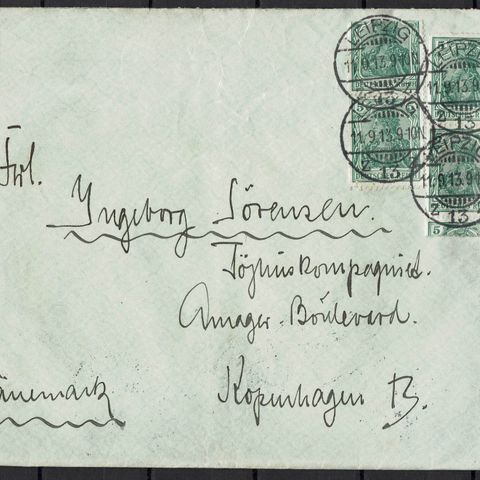 LEIPZIG
11.9.13.9-10N.
13
11.9.13.9-10N.
13
LEIPZIG
11.9.13.9
13
LEIPZIG
11.9.13.9-10
13
5
Frl.
Ingeborg Sörensen.
Töjhuskompagniet.
Amager-Boulevard.
Kopenhagen B.
änemark